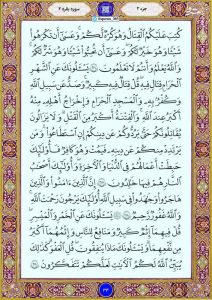 جزء ۲
سوره بقره ۲
كُتِبَ عَلَيْكُمُ الْقِتَالُ وَهُوَ كُرْهٌ لَكُمْ وَعَسَىٰ أَنْ تَكْرَهُوا
شَيْئًا وَهُوَ خَيْرٌ لَكُمْ وَعَسَىٰ أَنْ تُحِبُّوا شَيْئًا وَهُوَ شَرٌّ لَكُمْ
وَاللَّهُ يَعْلَمُ وَأَنْتُمْ لَا تَعْلَمُونَ يَسْأَلُونَكَ عَنِ الشَّهْرِ
الْحَرَامِ قِتَالٍ فِيهِ قُلْ قِتَالٌ فِيهِ كَبِيرٌ وَصَدٌّ عَنْ سَبِيلِ اللَّهِ
وَكُفْرٌ بِهِ وَالْمَسْجِدِ الْحَرَامِ وَإِخْرَاجُ أَهْلِهِ مِنْهُ
أَكْبَرُ عِنْدَ اللَّهِ وَالْفِتْنَةُ أَكْبَرُ مِنَ الْقَتْلِ وَلَا يَزَالُونَ
يُقَاتِلُونَكُمْ حَتَّىٰ يَرُدُّوكُمْ عَنْ دِينِكُمْ إِنِ اسْتَطَاعُوا وَمَنْ
يَرْتَدِدْ مِنْكُمْ عَنْ دِينِهِ فَيَمُتْ وَهُوَ كَافِرٌ فَأُولَٰئِكَ
حَبِطَتْ أَعْمَالُهُمْ فِي الدُّنْيَا وَالْآخِرَةِ وَأُولَٰئِكَ أَصْحَابُ
النَّارِ هُمْ فِيهَا خَالِدُونَ إِنَّ الَّذِينَ آمَنُوا وَالَّذِينَ
هَاجَرُوا وَجَاهَدُوا فِي سَبِيلِ اللَّهِ أُولَٰئِكَ يَرْجُونَ رَحْمَتَ اللَّهِ
وَاللَّهُ غَفُورٌ رَحِيمٌ يَسْأَلُونَكَ عَنِ الْخَمْرِ وَالْمَيْسِرِ
قُلْ فِيهِمَا إِثْمٌ كَبِيرٌ وَمَنَافِعُ لِلنَّاسِ وَإِثْمُهُمَا أَكْبَرُ
مِنْ نَفْعِهِمَا وَيَسْأَلُونَكَ مَاذَا يُنْفِقُونَ قُلِ الْعَفْوَ كَذَٰلِكَ
يُبَيِّنُ اللَّهُ لَكُمُ الْآيَاتِ لَعَلَّكُمْ تَتَفَكَّرُونَ
۳۴